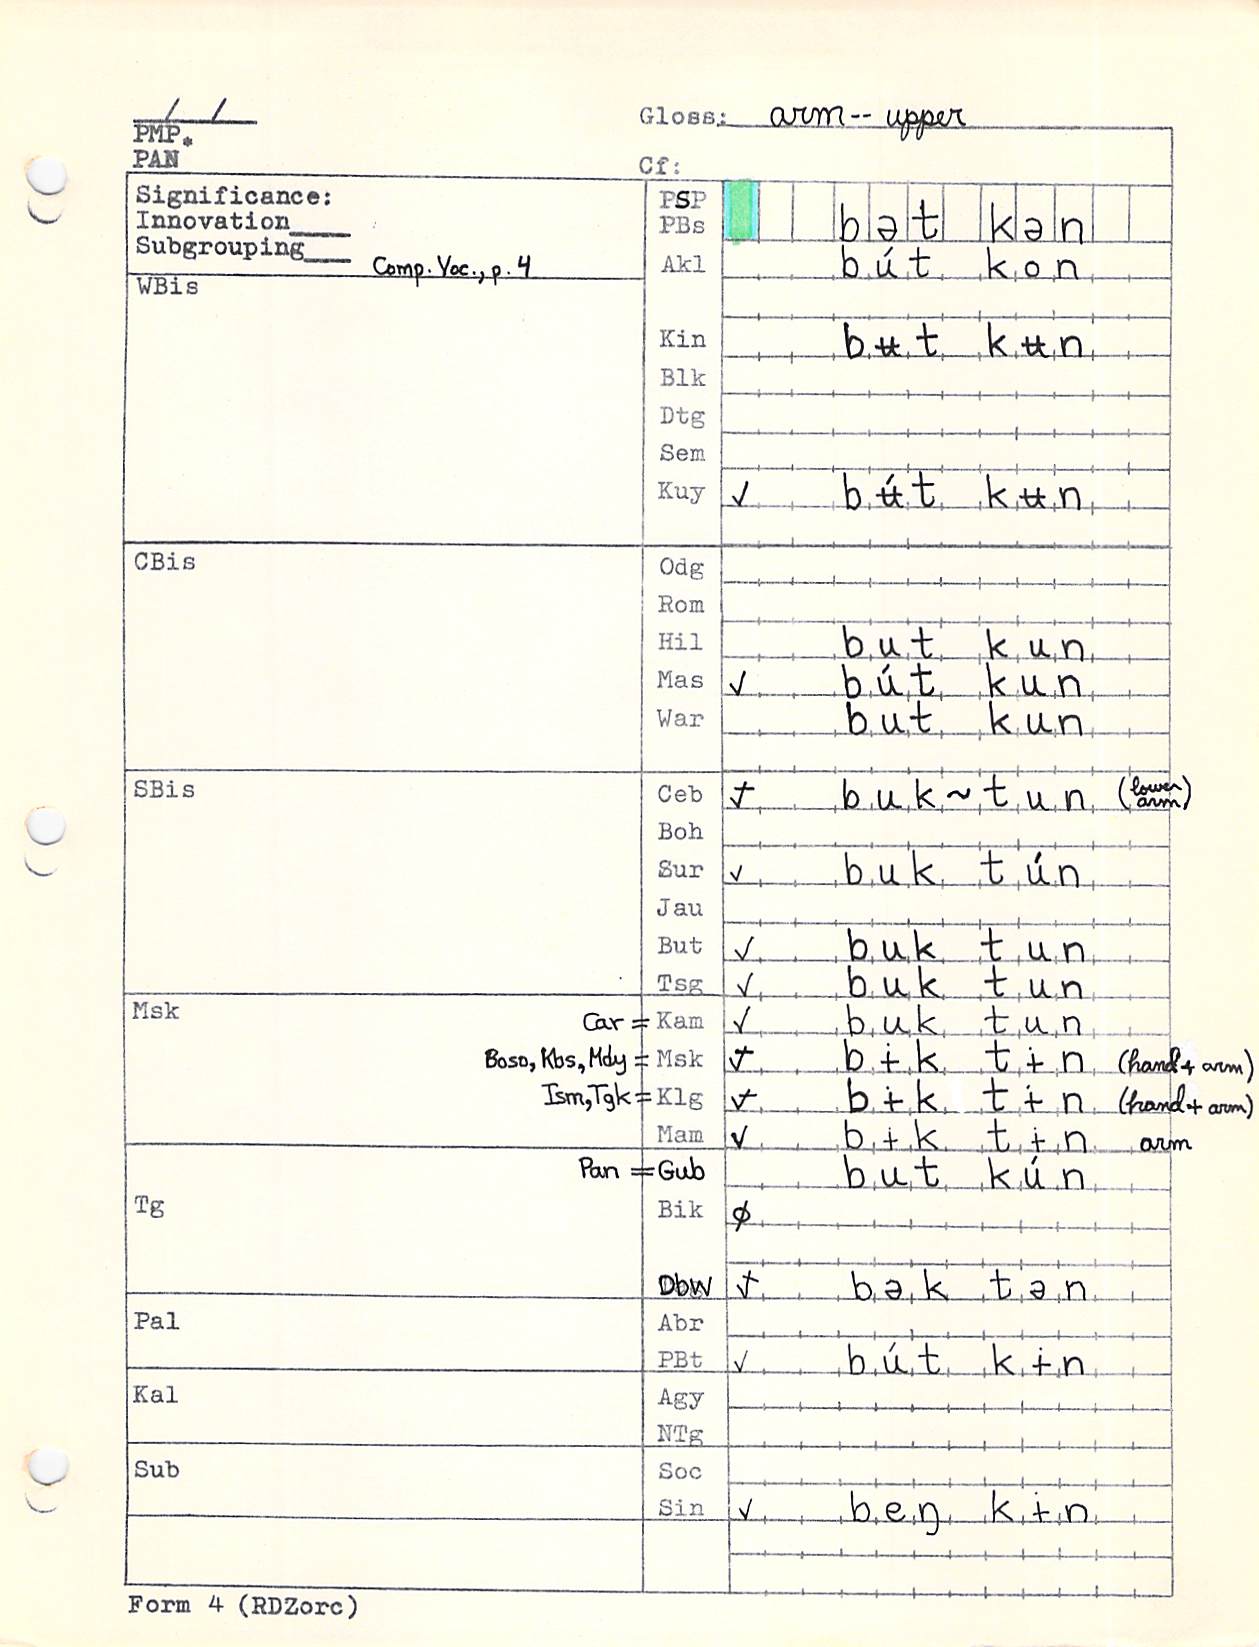 / /
Gloss: arm -- upper
PMP.
PAN
Cf:
Significance:
Innovation____
Subgrouping____
Comp. Voc., p. 4
PSP
PBs bət kən
Akl bút kon
WBis
Kin bʉt kʉn
Blk
Dtg
Sem
Kuy ✓ bʉ́t kʉn
CBis
Odg
Rom
Hil but kun
Mas ✓ bút kun
War but kun
SBis
Ceb ✓ buk~tun (lower arm)
Boh
Sur ✓ buk tún
Jau
But ✓ buk tun
Tsg ✓ buk tun
Msk
Car = Kam ✓ buk tun
Boso, Kbs, Mdy = Msk ✓ bɨk tɨn (hand + arm)
Ism, Tgk = Klg ✓ bɨk tɨn (hand + arm)
Mam ✓ bɨk tɨn arm
Pan = Gub but kún
Tg
Bik ∅
DbW ✓ bək tən
Pal
Abr
PBt ✓ bút kɨn
Kal
Agy
NTg
Sub
Soc
Sin ✓ beŋ kɨn
Form 4 (RDZorc)